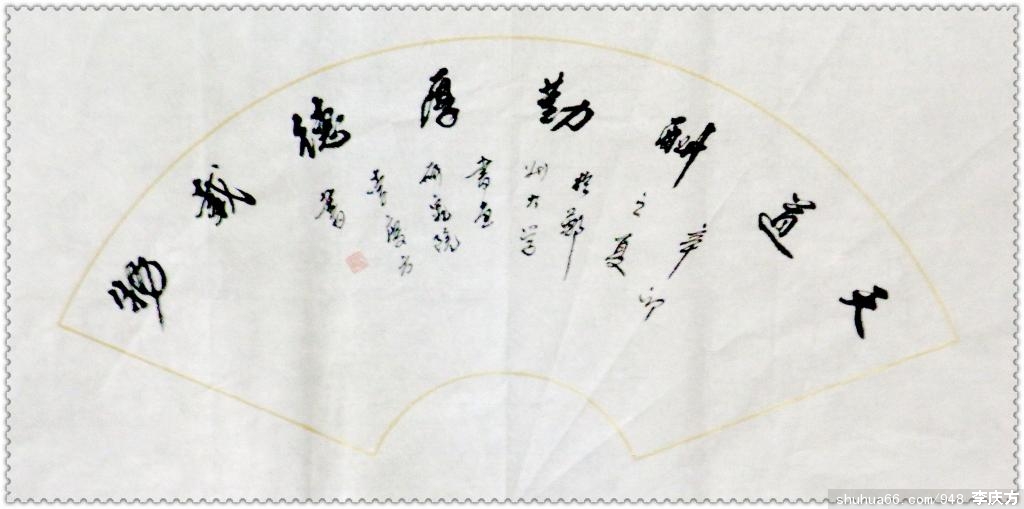 天道酬勤厚德载物
辛卯
之夏
於郑
州大学
书画
研究院
李庆方
书
shuhua66.com/948 李庆方